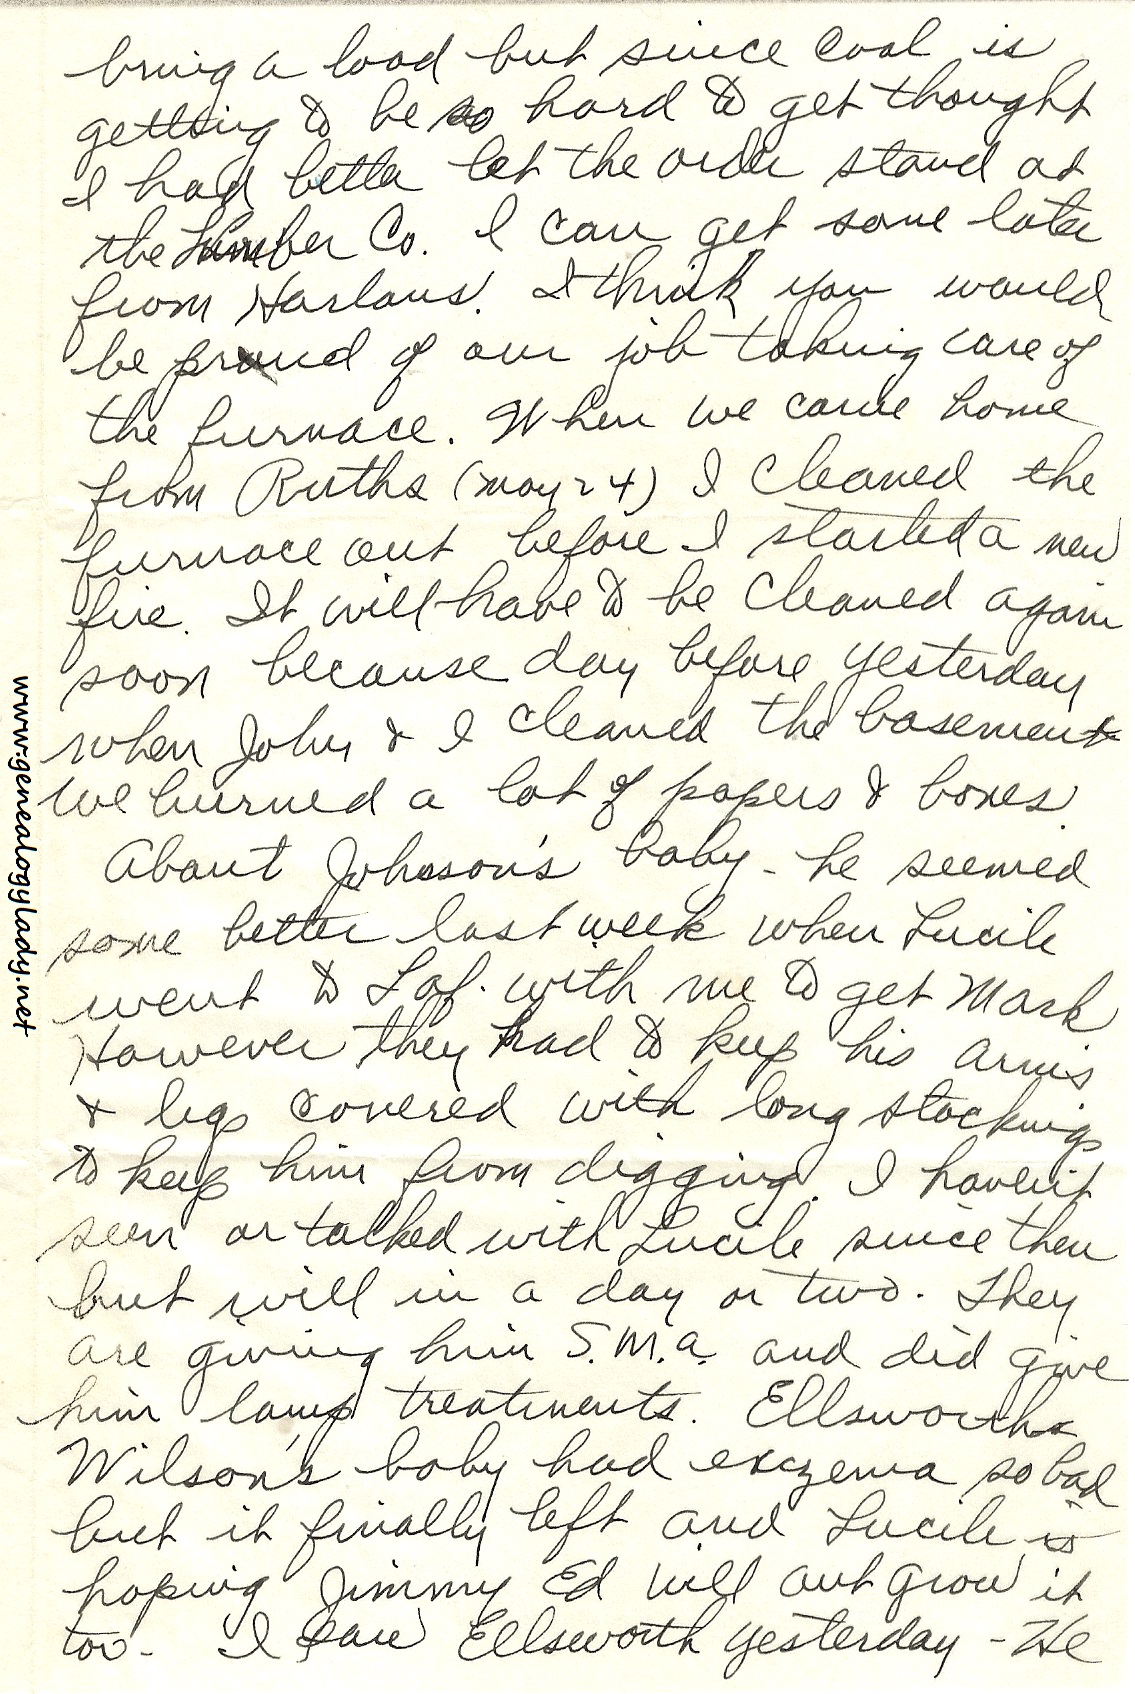 bring a load but since coal is
getting to be so hard to get thought
I had better let the order stand at
the Lumber Co. I can get some later
from Harlans'. I think you would
be proud of our job taking care of
the furnace. When we came home
from Ruths (May 24) I cleaned the
furnace out before I started a new
fire. It will have to be cleaned again
soon because day before yesterday
when John & I cleaned the basement
we burned a lot of papers & boxes.
About Johnson's baby - he seemed
some better last week when Lucile
went to Laf. with me to get Mark
However they had to keep his arms
& legs covered with long stockings
to keep him from digging. I haven't
seen or talked with Lucile since then
but will in a day or two. They
are giving him S.M.a. and did give
him lamp treatments. Ellsworth
Wilson's baby had exczema so bad
but it finally left and Lucile is
hoping Jimmy Ed will out grow it
too. I saw Ellsworth yesterday - He
www.genealogylady.net